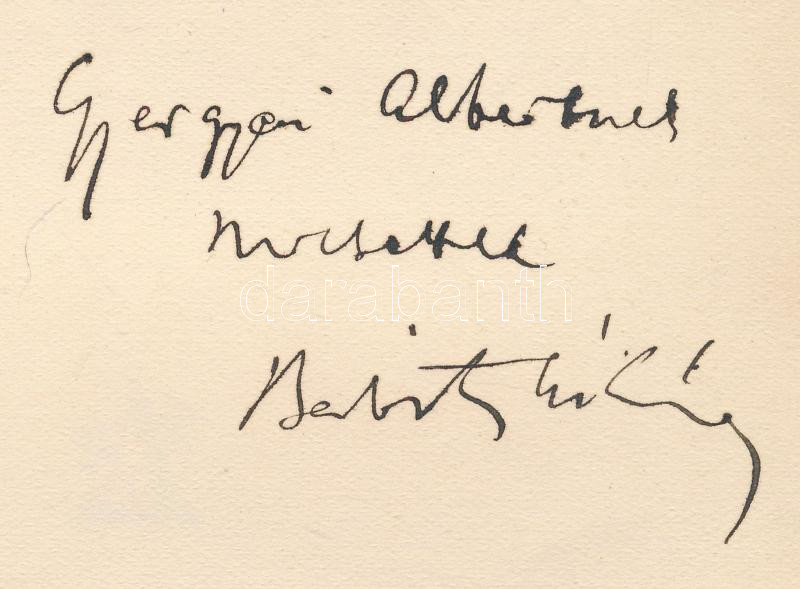 Gyergyai Albertnek
szeretettel
darabanth
Babits Mihály